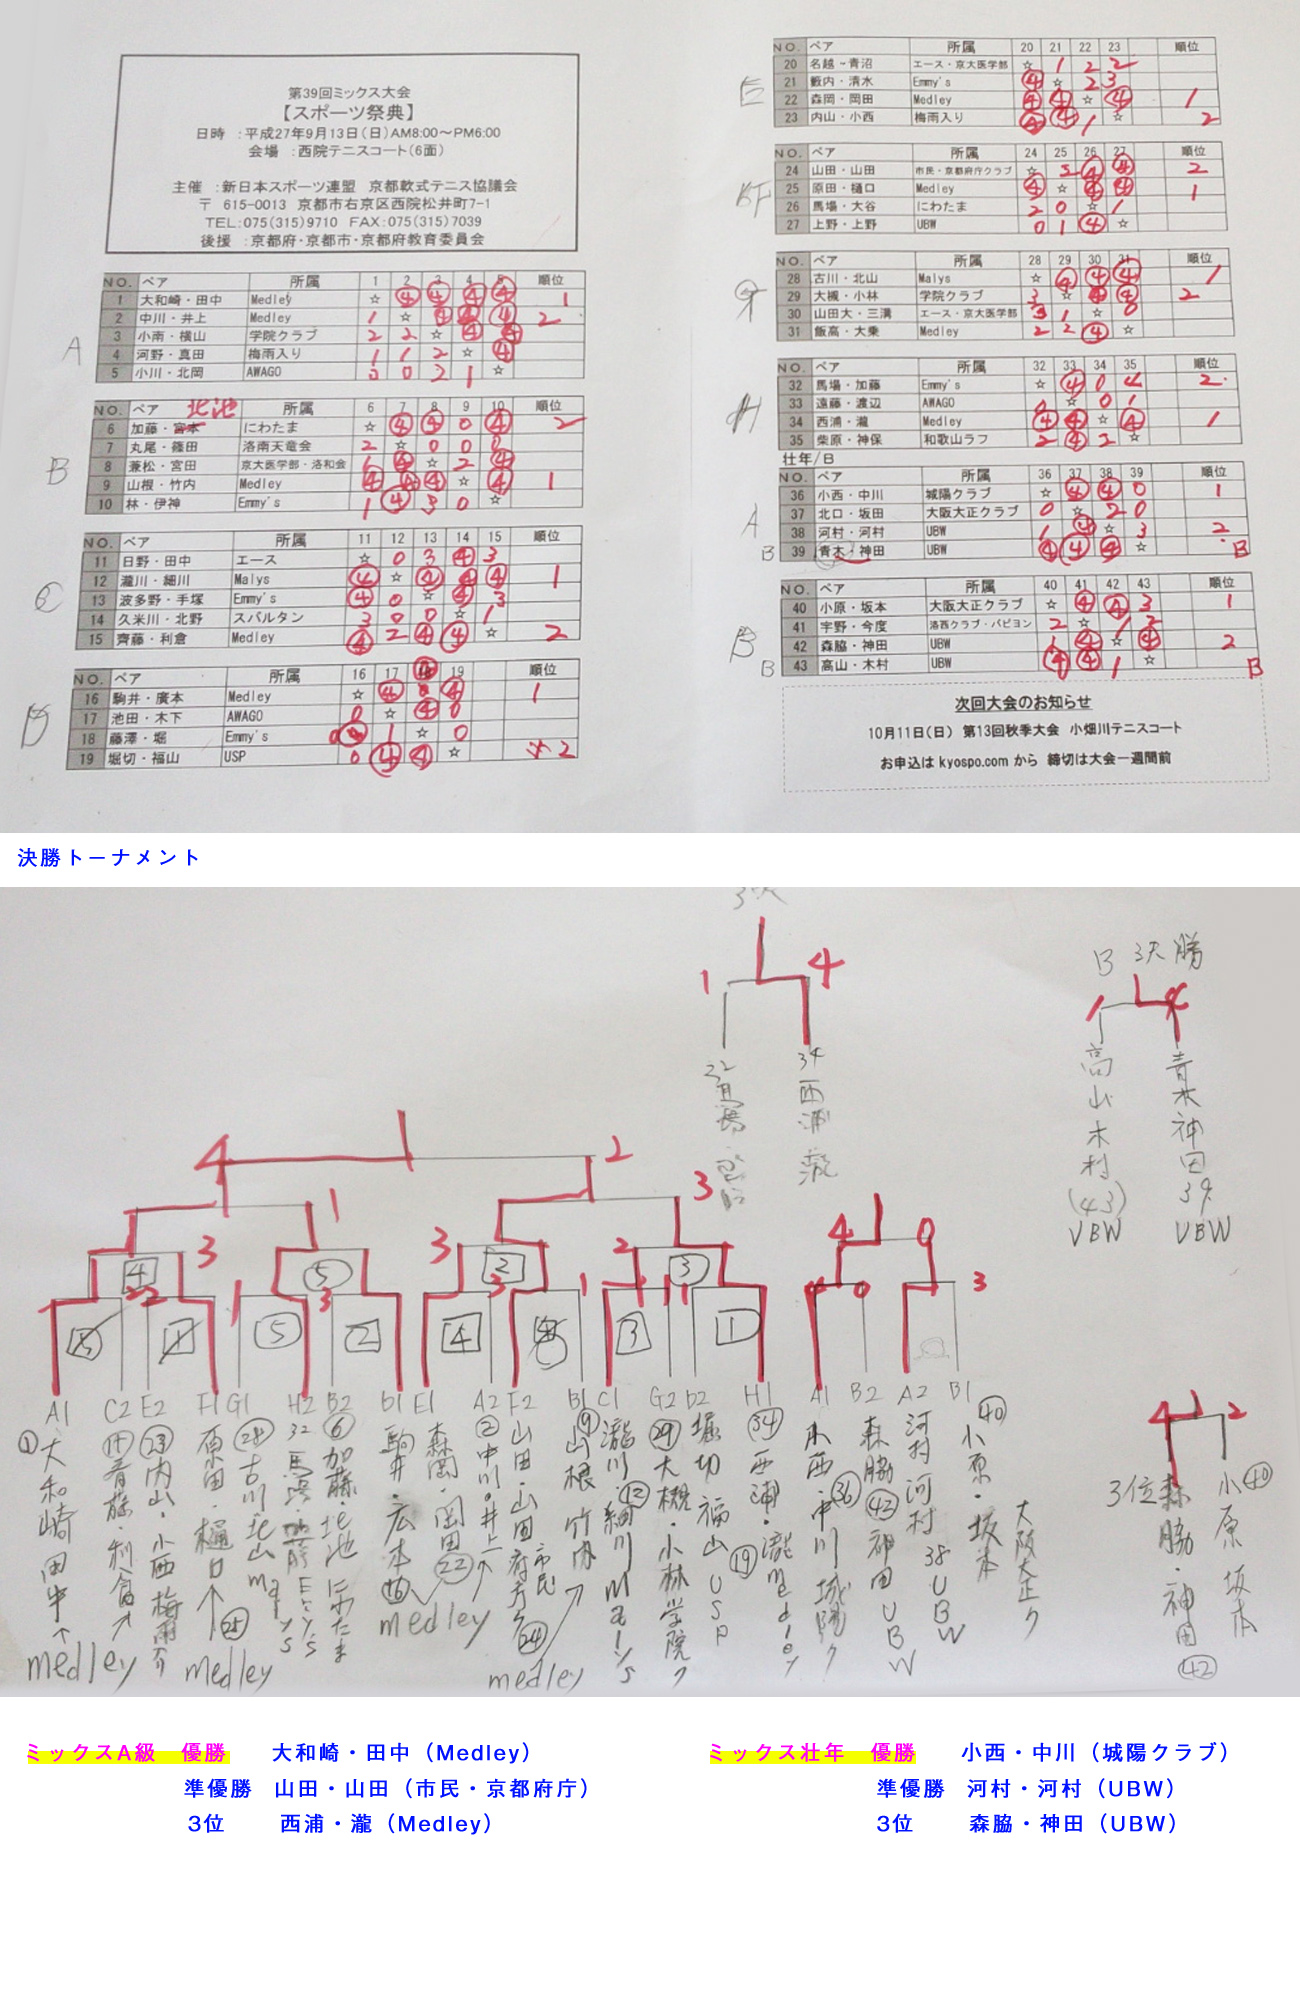 第39回ミックス大会
【スポーツ祭典】
日時 :平成27年9月13日(日)AM8:00～PM6:00
会場 :西院テニスコート(6面)
主催 :新日本スポーツ連盟 京都軟式テニス協議会
〒 615-0013 京都市右京区西院松井町7-1
TEL:075(315)9710 FAX:075(315)7039
後援 :京都府・京都市・京都府教育委員会
A
NO. ペア 所属 1 2 3 4 5 順位
1 大和崎・田中 Medley ☆ ④ ④ ④ ④ 1
2 中川・井上 Medley 1 ☆ ④ ④ ④ 2
3 小南・横山 学院クラブ 2 2 ☆ ④ ④
4 河野・真田 梅雨入り 1 1 2 ☆ ④
5 小川・北岡 AWAGO 0 0 2 1 ☆
B
NO. ペア 北池 所属 6 7 8 9 10 順位
6 加藤・宮本 にわたま ☆ ④ ④ 0 ④ 2
7 丸尾・篠田 洛南天竜会 2 ☆ 0 0
8 兼松・宮田 京大医学部・洛和会 ④ ☆ 2 ④
9 山根・竹内 Medley ④ ④ ④ ☆ ④ 1
10 林・伊神 Emmy's 1 ④ 3 0 ☆
C
NO. ペア 所属 11 12 13 14 15 順位
11 日野・田中 エース ☆ 0 3 ④ 3
12 瀧川・細川 Malys ④ ☆ ④ ④ ④ 1
13 波多野・手塚 Emmy's ④ 0 ☆ ④ 3
14 久米川・北野 スパルタン 3 0 0 ☆ 1
15 齊藤・利倉 Medley ④ 2 ④ ④ ☆ 2
D
NO. ペア 所属 16 17 18 19 順位
16 駒井・廣本 Medley ☆ ④ ④ 1
17 池田・木下 AWAGO 0 ☆ ④ 0
18 藤澤・堀 Emmy's 1 ☆ 0
19 堀切・福山 USP 0 ④ ④ ☆ 2
E
NO. ペア 所属 20 21 22 23 順位
20 名越－青沼 エース・京大医学部 ☆ 1 2 2
21 藪内・清水 Emmy's ④ ☆ 2 3
22 森岡・岡田 Medley ④ ④ ☆ ④ 1
23 内山・小西 梅雨入り ④ ④ 1 ☆ 2
F
NO. ペア 所属 24 25 26 27 順位
24 山田・山田 市民・京都府庁クラブ ☆ 3 ④ ④ 2
25 原田・樋口 Medley ④ ☆ ④ ④ 1
26 馬場・大谷 にわたま 2 0 ☆ 1
27 上野・上野 UBW 0 1 ④ ☆
NO. ペア 所属 28 29 30 31 順位
28 古川・北山 Malys ☆ ④ ④ ④ 1
29 大槻・小林 学院クラブ 3 ☆ ④ ④ 2
30 山田大・三溝 エース・京大医学部 3 1 ☆ 0
31 飯高・大乗 Medley 2 2 ④ ☆
H
NO. ペア 所属 32 33 34 35 順位
32 馬場・加藤 Emmy's ☆ ④ 0 4 2
33 遠藤・渡辺 AWAGO 0 ☆ 0 1
34 西浦・瀧 Medley ④ ④ ☆ ④ 1
35 柴原・神保 和歌山ラフ 2 ④ 2 ☆
壮年/B
A
NO. ペア 所属 36 37 38 39 順位
36 小西・中川 城陽クラブ ☆ ④ ④ 0 1
37 北口・坂田 大阪大正クラブ 0 ☆ 2 0
38 河村・河村 UBW 1 ④ ☆ 3 2
B 39 青木・神田 UBW ④ ④ ④ ☆ B
B
NO. ペア 所属 40 41 42 43 順位
40 小原・坂本 大阪大正クラブ ☆ ④ ④ 3 1
41 宇野・今度 洛西クラブ・パピヨン 2 ☆ 1 2
42 森脇・神田 UBW 1 ④ ☆ ④ 2
B 43 高山・木村 UBW ④ ④ 1 ☆ B
次回大会のお知らせ
10月11日(日) 第13回秋季大会 小畑川テニスコート
お申込は kyospo.com から 締切は大会一週間前
決勝トーナメント
3決
1 4
32 馬場
34 西浦 瀧
B 決勝
1 4
高山 木村 (43) UBW
青木 神田 39 UBW
4 2
3 1 3 3
4 0
4 5 2 3
2 2 1 3 3 1 1 1 0 3
5 2 4 3 1
A1 C2 E2 F1 G1 H2 B2 D1 E1 A2 F2 B1 C1 G2 D2 H1 A1 B2 A2 B1
① 大和崎 田中 medley
⑮ 斉藤・利倉
㉓ 内山・小西 梅雨入り
原田・樋口 ㉕ medley
㉘ 古川・北山 Malys
32 馬場 加藤 Emmy's
⑥ 加藤・北池 にわたま
駒井・広本 ⑯ medley
森岡・岡田 ㉒
② 中川・井上
山田・山田 市民 府庁ク ㉔
⑨ 山根 竹内 medley
瀧川・細川 ⑫ Malys
㉙ 大槻・小林 学院ク
堀切 福山 USP ⑲
㉞ 西浦・瀧 medley
小西・中川 ㊱ 城陽ク
森脇 ㊷ 神田 UBW
河村 河村 38 UBW
㊵ 小原・坂本 大阪大正ク
4 2
3位 森脇・神田 ㊷
小原 坂本 ㊵
ミックスA級 優勝 大和崎・田中（Medley）
準優勝 山田・山田（市民・京都府庁）
3位 西浦・瀧（Medley）
ミックス壮年 優勝 小西・中川（城陽クラブ）
準優勝 河村・河村（UBW）
3位 森脇・神田（UBW）